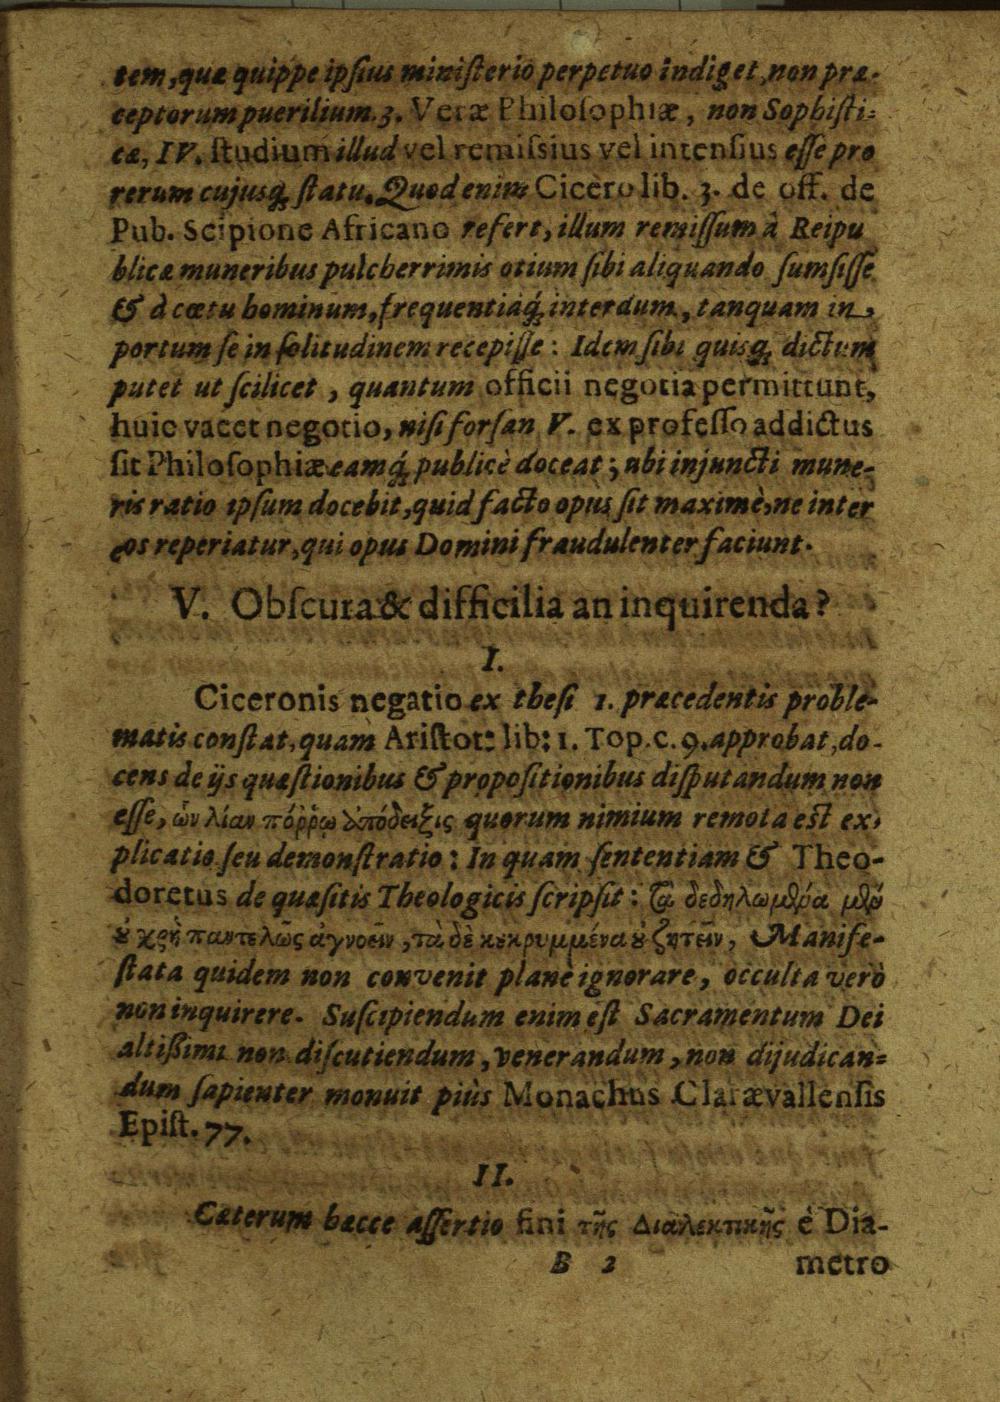 tem, quæ quippe ipsius ministerio perpetuo indiget, non præ-
ceptorum puerilium. 3. Veræ Philosophiæ, non Sophisti-
cæ, IV. studium illud vel remissius vel intensius esse pro
rerum cujusq́; statu. Quod enim Cicero lib. 3. de off. de
Pub. Scipione Africano refert, illum remissum à Reipu
blicæ muneribus pulcherrimis otium sibi aliquando sumsisse
& à cœtu hominum, frequentiaq́; interdum, tanquam in
portum se in solitudinem recepisse: Idem sibi quisq; dictum
putet ut scilicet, quantum officii negotia permittunt,
huic vacet negotio, nisi forsan V. ex professo addictus
sit Philosophiæ eamq́; publicè doceat; ubi injuncti mune-
ris ratio ipsum docebit, quid facto opus sit maximè, ne inter
eos reperiatur, qui opus Domini fraudulenter faciunt.
V. Obscura & difficilia an inquirenda?
I.
Ciceronis negatio ex thesi 1. præcedentis proble-
matis constat, quam Aristot: lib: 1. Top. c. 9. approbat, do-
cens de ijs quæstionibus & propositionibus disputandum non
esse, ὧν λίαν πόῤῥω ἀπόδειξις quorum nimium remota est ex-
plicatio seu demonstratio: In quam sententiam & Theo-
doretus de quæsitis Theologicis scripsit: τὰ δεδηλωμένα μὲν
ȣ χρὴ παντελῶς ἀγνοεῖν, τὰ δὲ κυκρυμμένα ȣ ζητεῖν, Manife-
stata quidem non convenit planè ignorare, occulta verò
non inquirere. Suscipiendum enim est Sacramentum Dei
altißimi non discutiendum, venerandum, non dijudican-
dum sapienter monuit piùs Monachus Claræ vallensis
Epist. 77.
II.
Cæterum hæcce assertio fini τῆς Διαλεκτικῆς è Dia-
B 2 metro